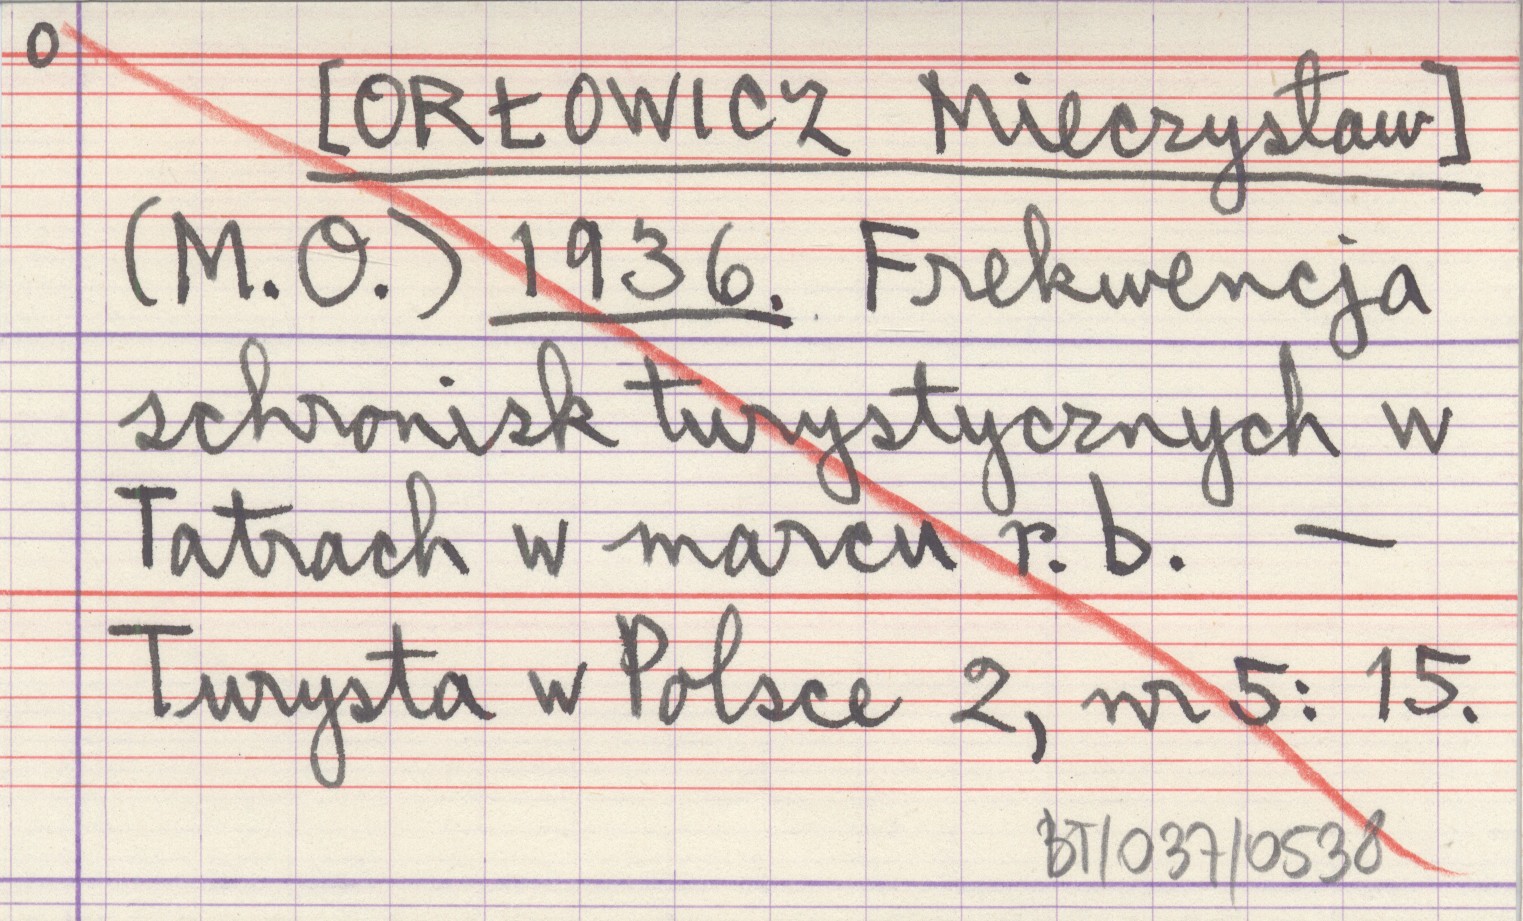 o
[ORŁOWICZ Mieczysław]
(M.O.) 1936. Frekwencja
schronisk turystycznych w
Tatrach w marcu r. b. —
Turysta w Polsce 2, nr 5: 15.
BT/037/0538